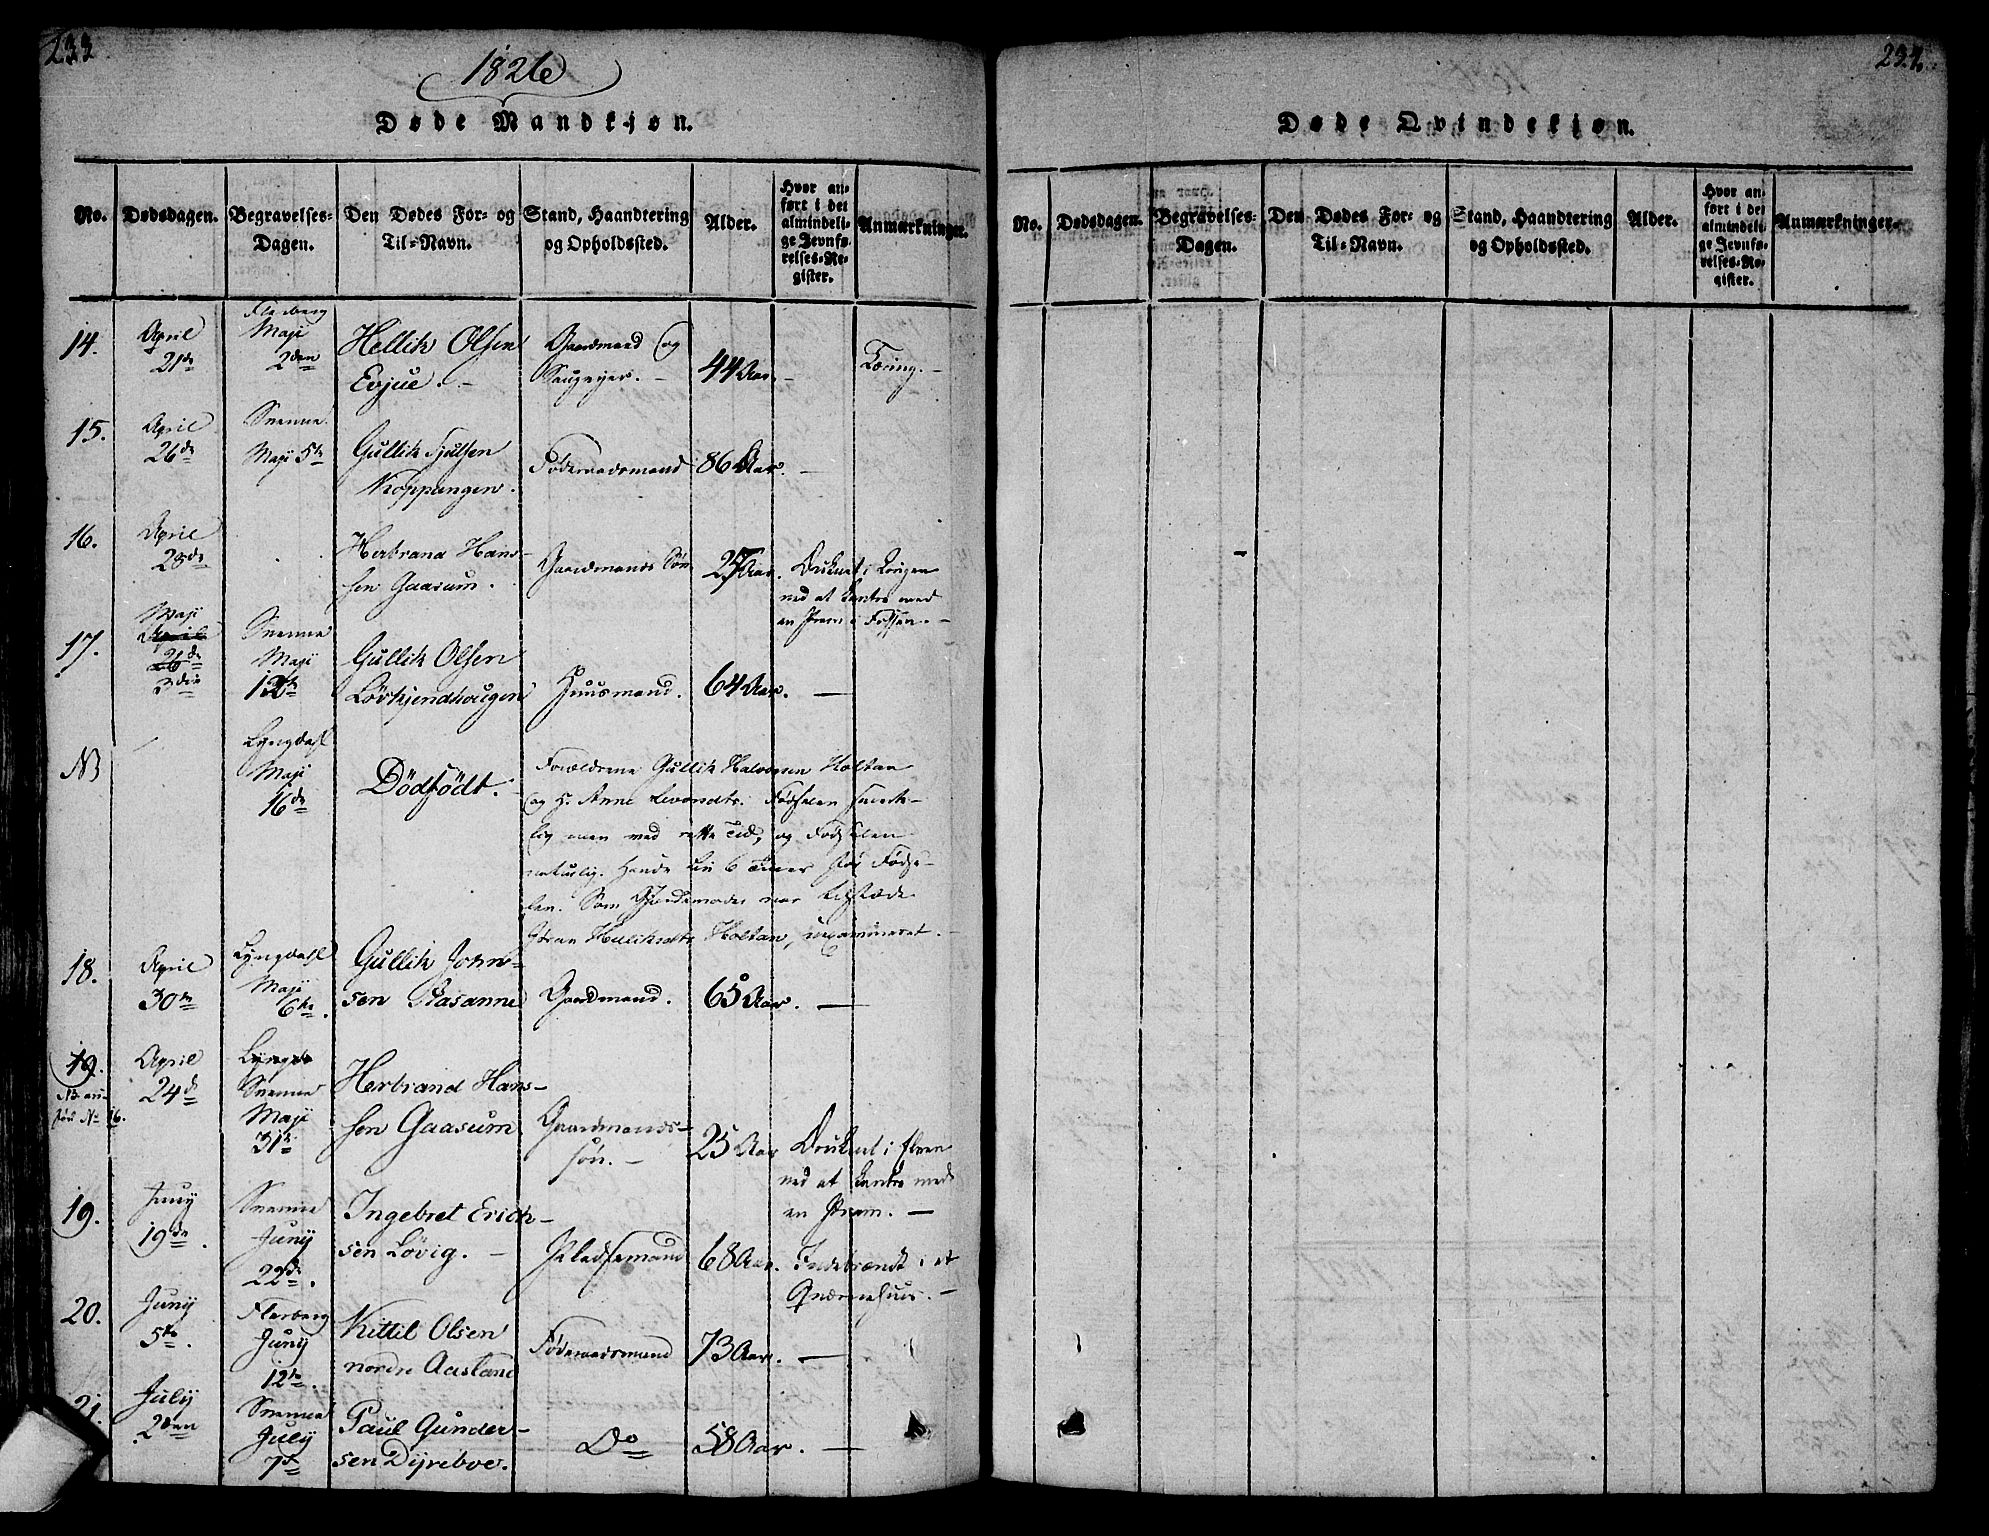 233
1826
Døde Mandkjøn.
No.
Dødsdagen.
Begravelses-
Dagen.
Den Dødes For- og
Til-Navn.
Stand, Haandtering
og Opholdssted.
Alder.
Hvor an-
ført i det
almindeli-
ge Jevnfø-
relses-Re-
gister.
Anmærkninger.
14.
April
21de
Flesberg
Maji
2den
Hellik Olsen
Evjue. -
Gaardmand og
44 Aar. -
Tæring. -
15.
April
26de
Svenne
Maji 5te
Gullik Kjulsen
Koppangen.
Föderaadsmand
86 Aar. -
16.
April
28de
Herbrand Hans-
sen Gaasum.
Gaardmands Sön
Druknet i Lougen
ved at kantre med
en Pram i Fossen. -
17.
Maji
April
26de
3die
Svenne
Maji
Gullik Olsen
Huusmand.
64 Aar. -
NB
Lyngdahl
Maji
16de
Dödfödt.
Forældrene Gullik Halvorsen Holtan
og H. Anne Födselen
men med rette Tid, og Fodselen
naturlig. 6 Timer för Födse-
len. Som Jordemoder var tilstæde
Göran Helliksdtr. Holtan, uexamineret. -
18.
April
30te
Lyngdahl
Maji
6te.
Gullik John-
sen Aasanne
Gaardmand.
65 Aar. -
19.
NB an-
för No 16.
April
24de
Svenne
Maji
31te
Herbrand Hans-
sen Gaasum
Gaardmands-
sön. -
25 Aar
Druknet i Elven
ved at kantre med
en Pram. -
19.
Juny
19de.
Svenne
Juny
22de.
Ingebret Erich-
sen Lövig. -
Pladsemand
68 Aar.
Indebrændt i et
Qværnehuus. -
20.
Juny
5te.
Flesberg
Juny
12te.
Kittil Olsen
nordre Aasland
Föderaadsmand
73 Aar. -
21.
July
2den
Svenne
July
7de
Paul Gunder-
sen Dyreboe.
Do
58 Aar. -
Døde Qvindekjøn.
No.
Dødsdagen.
Begravelses-
Dagen.
Den Dødes For- og
Til-Navn.
Stand, Haandtering
og Opholdssted.
Alder.
Hvor an-
ført i det
almindeli-
ge Jevnfø-
relses-Re-
gister.
Anmærkninger.